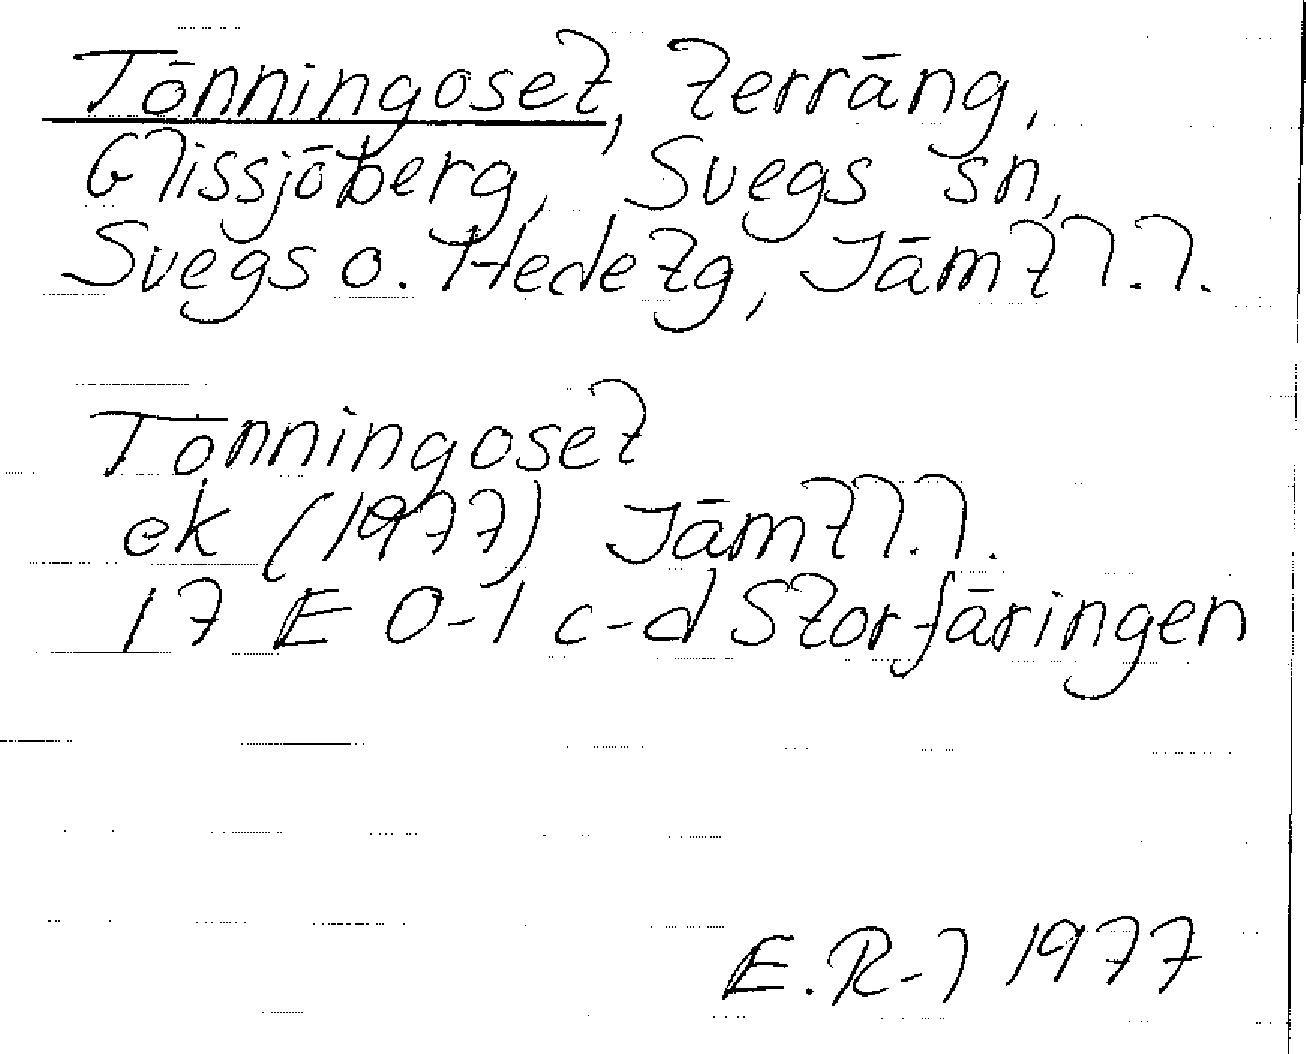 Tönningoset, terräng,
Glissjöberg, Svegs sn,
Svegs o. Hede tg, Jämtl.l.
Tönningoset
ek (1977) Jämtl.l.
17 E 0-1 c-d Storfäringen
E.R-l 1977